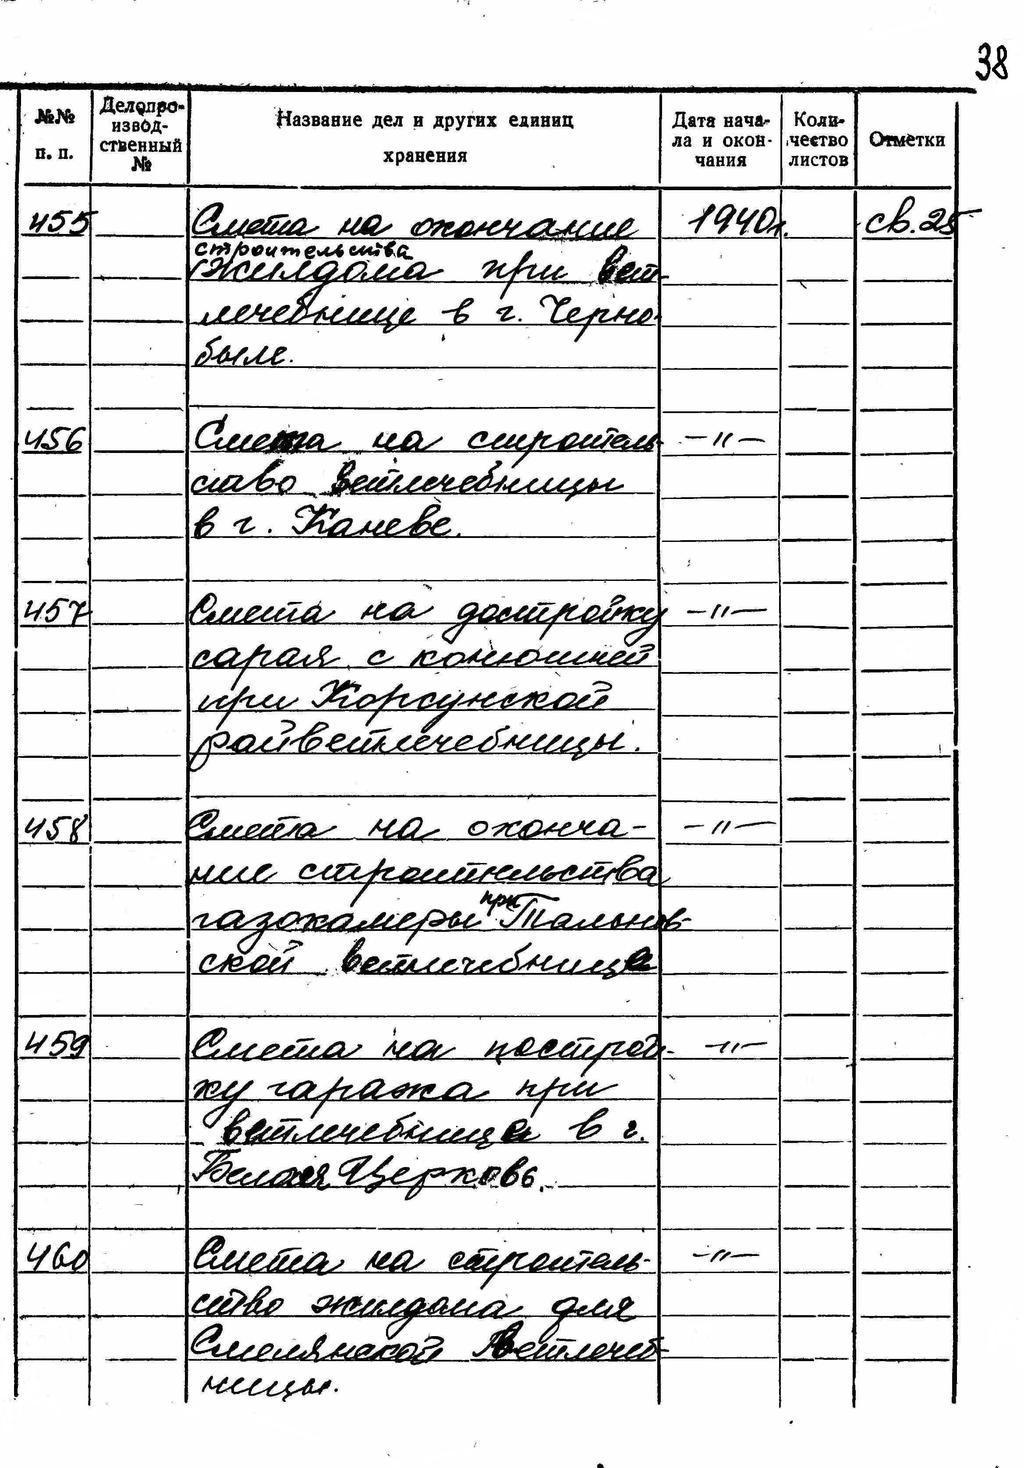 38
№№ п. п. Делопроизводственный № Название дел и других единиц хранения Дата начала и окончания Количество листов Отметки
455 Смета на окончание 1940г. св. 25
строительства
жилдома при вет-
лечебнице в г. Черно-
быле.
456 Смета на строитель- —"—
ство ветлечебницы
в г. Каневе.
457 Смета на достройку —"—
сарая с конюшней
при Корсунской
райветлечебницы.
458 Смета на оконча- —"—
ние строительства
газокамеры при Тальнов-
ской ветлечебнице
459 Смета на построй- —"—
ку гаража при
ветлечебнице в г.
Белая Церковь.
460 Смета на строитель- —"—
ство жилдома для
Смелянской ветлечеб-
ницы.